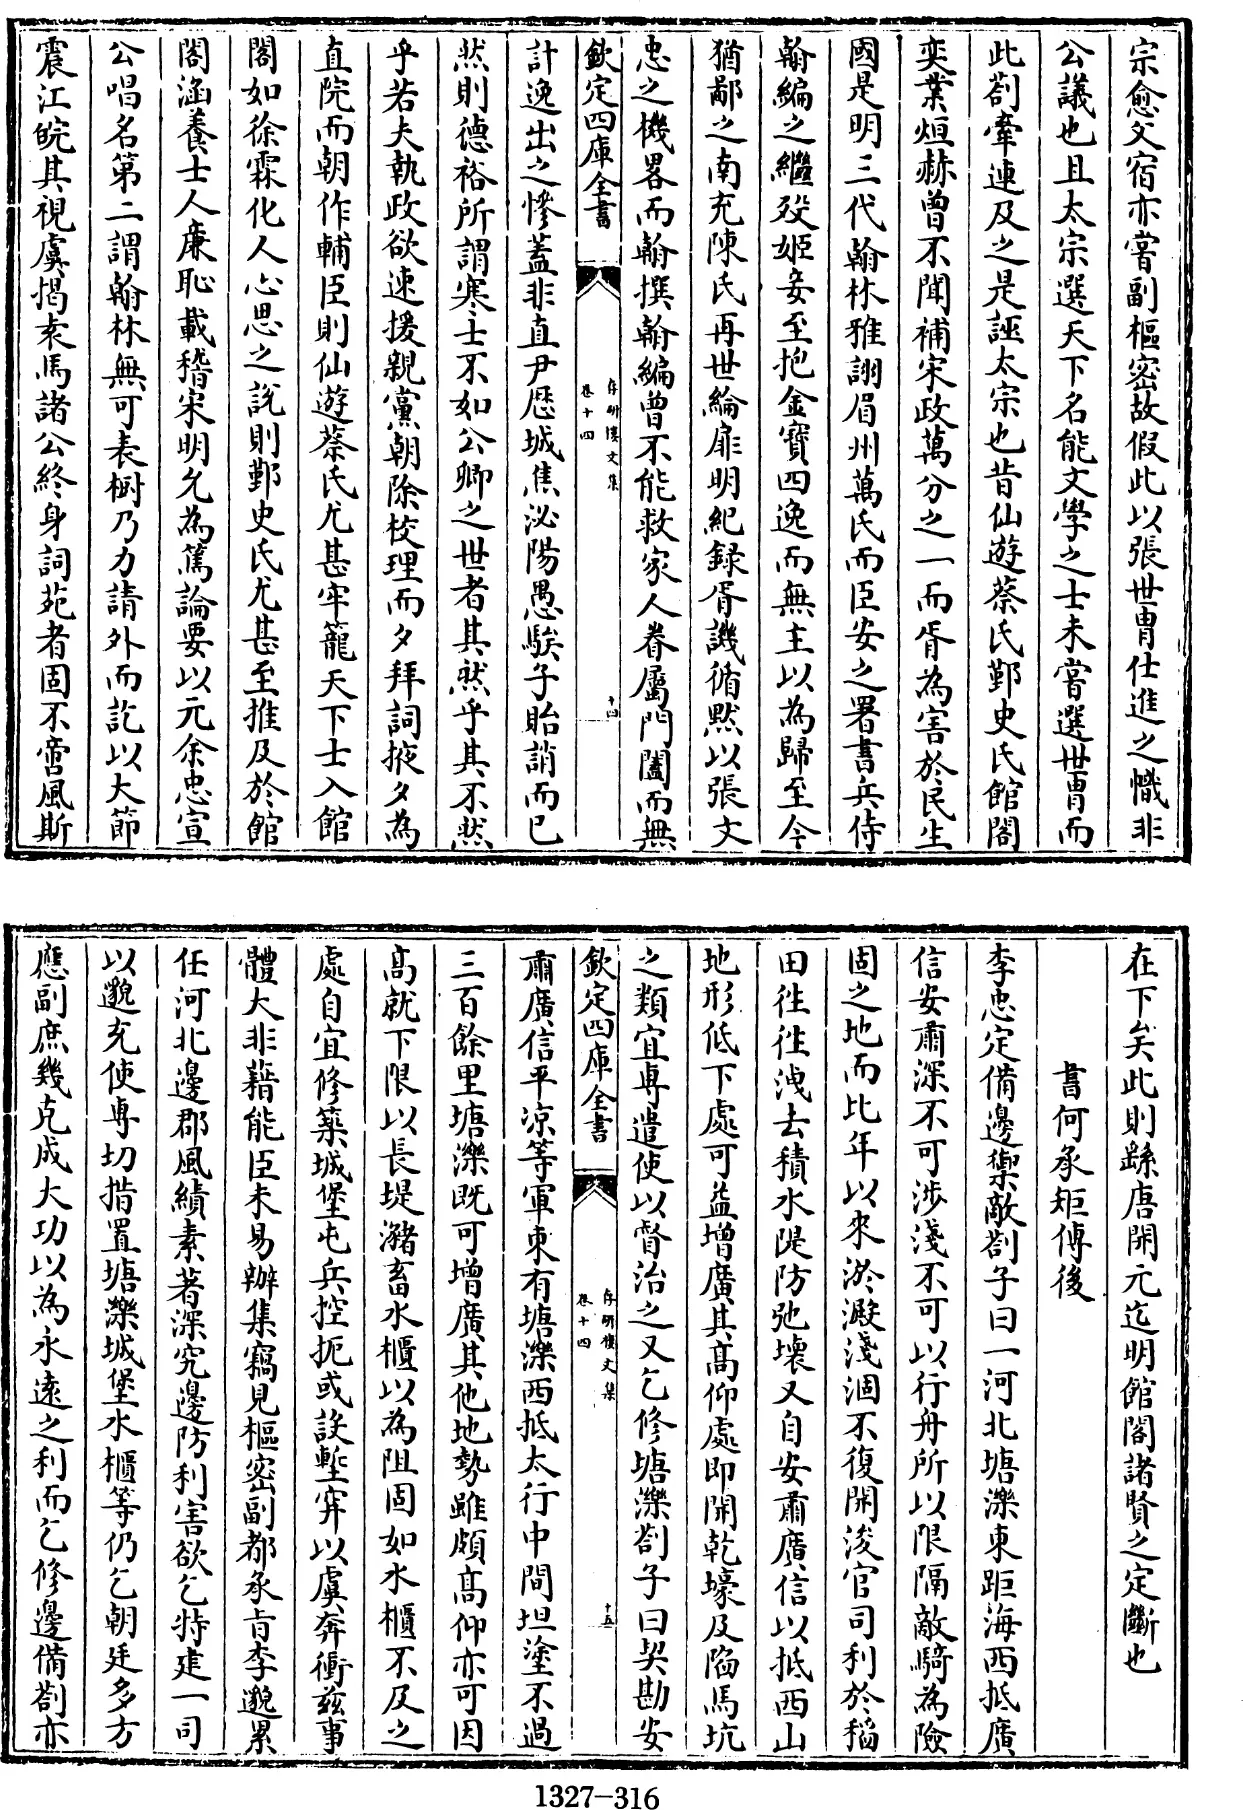 宗愈父宿亦嘗副樞密故假此以張世胄仕進之幟非
公議也且太宗選天下名能文學之士未嘗選世胄而
此劄牽連及之是誣太宗也昔仙遊蔡氏鄞史氏館閣
奕葉烜赫曾不聞補宋政萬分之一而胥為害於民生
國是明三代翰林雅詡眉州萬氏而臣安之署書兵侍
翰編之繼歿姬妾至抱金寶四逸而無主以為歸至今
猶鄙之南充陳氏再世綸扉明紀録胥譏循黙以張文
忠之機畧而翰撰翰編曾不能救家人眷屬門闔而無
欽定四庫全書
存研樓文集
卷十四
十四
計逸出之慘蓋非直尹歴城焦泌陽愚騃子貽誚而已
然則德裕所謂寒士不如公卿之世者其然乎其不然
乎若夫執政欲速援親黨朝除校理而夕拜詞掖夕為
直院而朝作輔臣則仙遊蔡氏尤甚牢籠天下士入館
閣如徐霖化人心思之說則鄞史氏尤甚至推及於館
閣涵養士人廉恥載稽宋明允為篤論要以元余忠宣
公唱名第二謂翰林無可表樹乃力請外而訖以大節
震江皖其視虞揭袁馬諸公終身詞苑者固不啻風斯
在下矣此則繇唐開元迄明館閣諸賢之定斷也
書何承矩傳後
李忠定備邊禦敵劄子曰一河北塘濼東距海西抵廣
信安肅深不可涉淺不可以行舟所以限隔敵騎為險
固之地而比年以來淤澱淺涸不復開浚官司利於稻
田往往洩去積水隄防弛壊又自安肅廣信以抵西山
地形低下處可益增廣其高仰處即開乾壕及陷馬坑
之類宜專遣使以督治之又乞修塘濼劄子曰契勘安
欽定四庫全書
存研樓文集
卷十四
十五
肅廣信平凉等軍東有塘濼西抵太行中間坦塗不過
三百餘里塘濼既可增廣其他地勢雖頗高仰亦可因
高就下限以長堤瀦畜水櫃以為阻固如水櫃不及之
處自宜修築城堡屯兵控扼或設塹穽以虞奔衝兹事
體大非藉能臣未易辦集竊見樞密副都承旨李邈累
任河北邊郡風績素著深究邊防利害欲乞特建一司
以邈充使専切措置塘濼城堡水櫃等仍乞朝廷多方
應副庶幾克成大功以為永遠之利而乞修邊備劄亦
1327-316